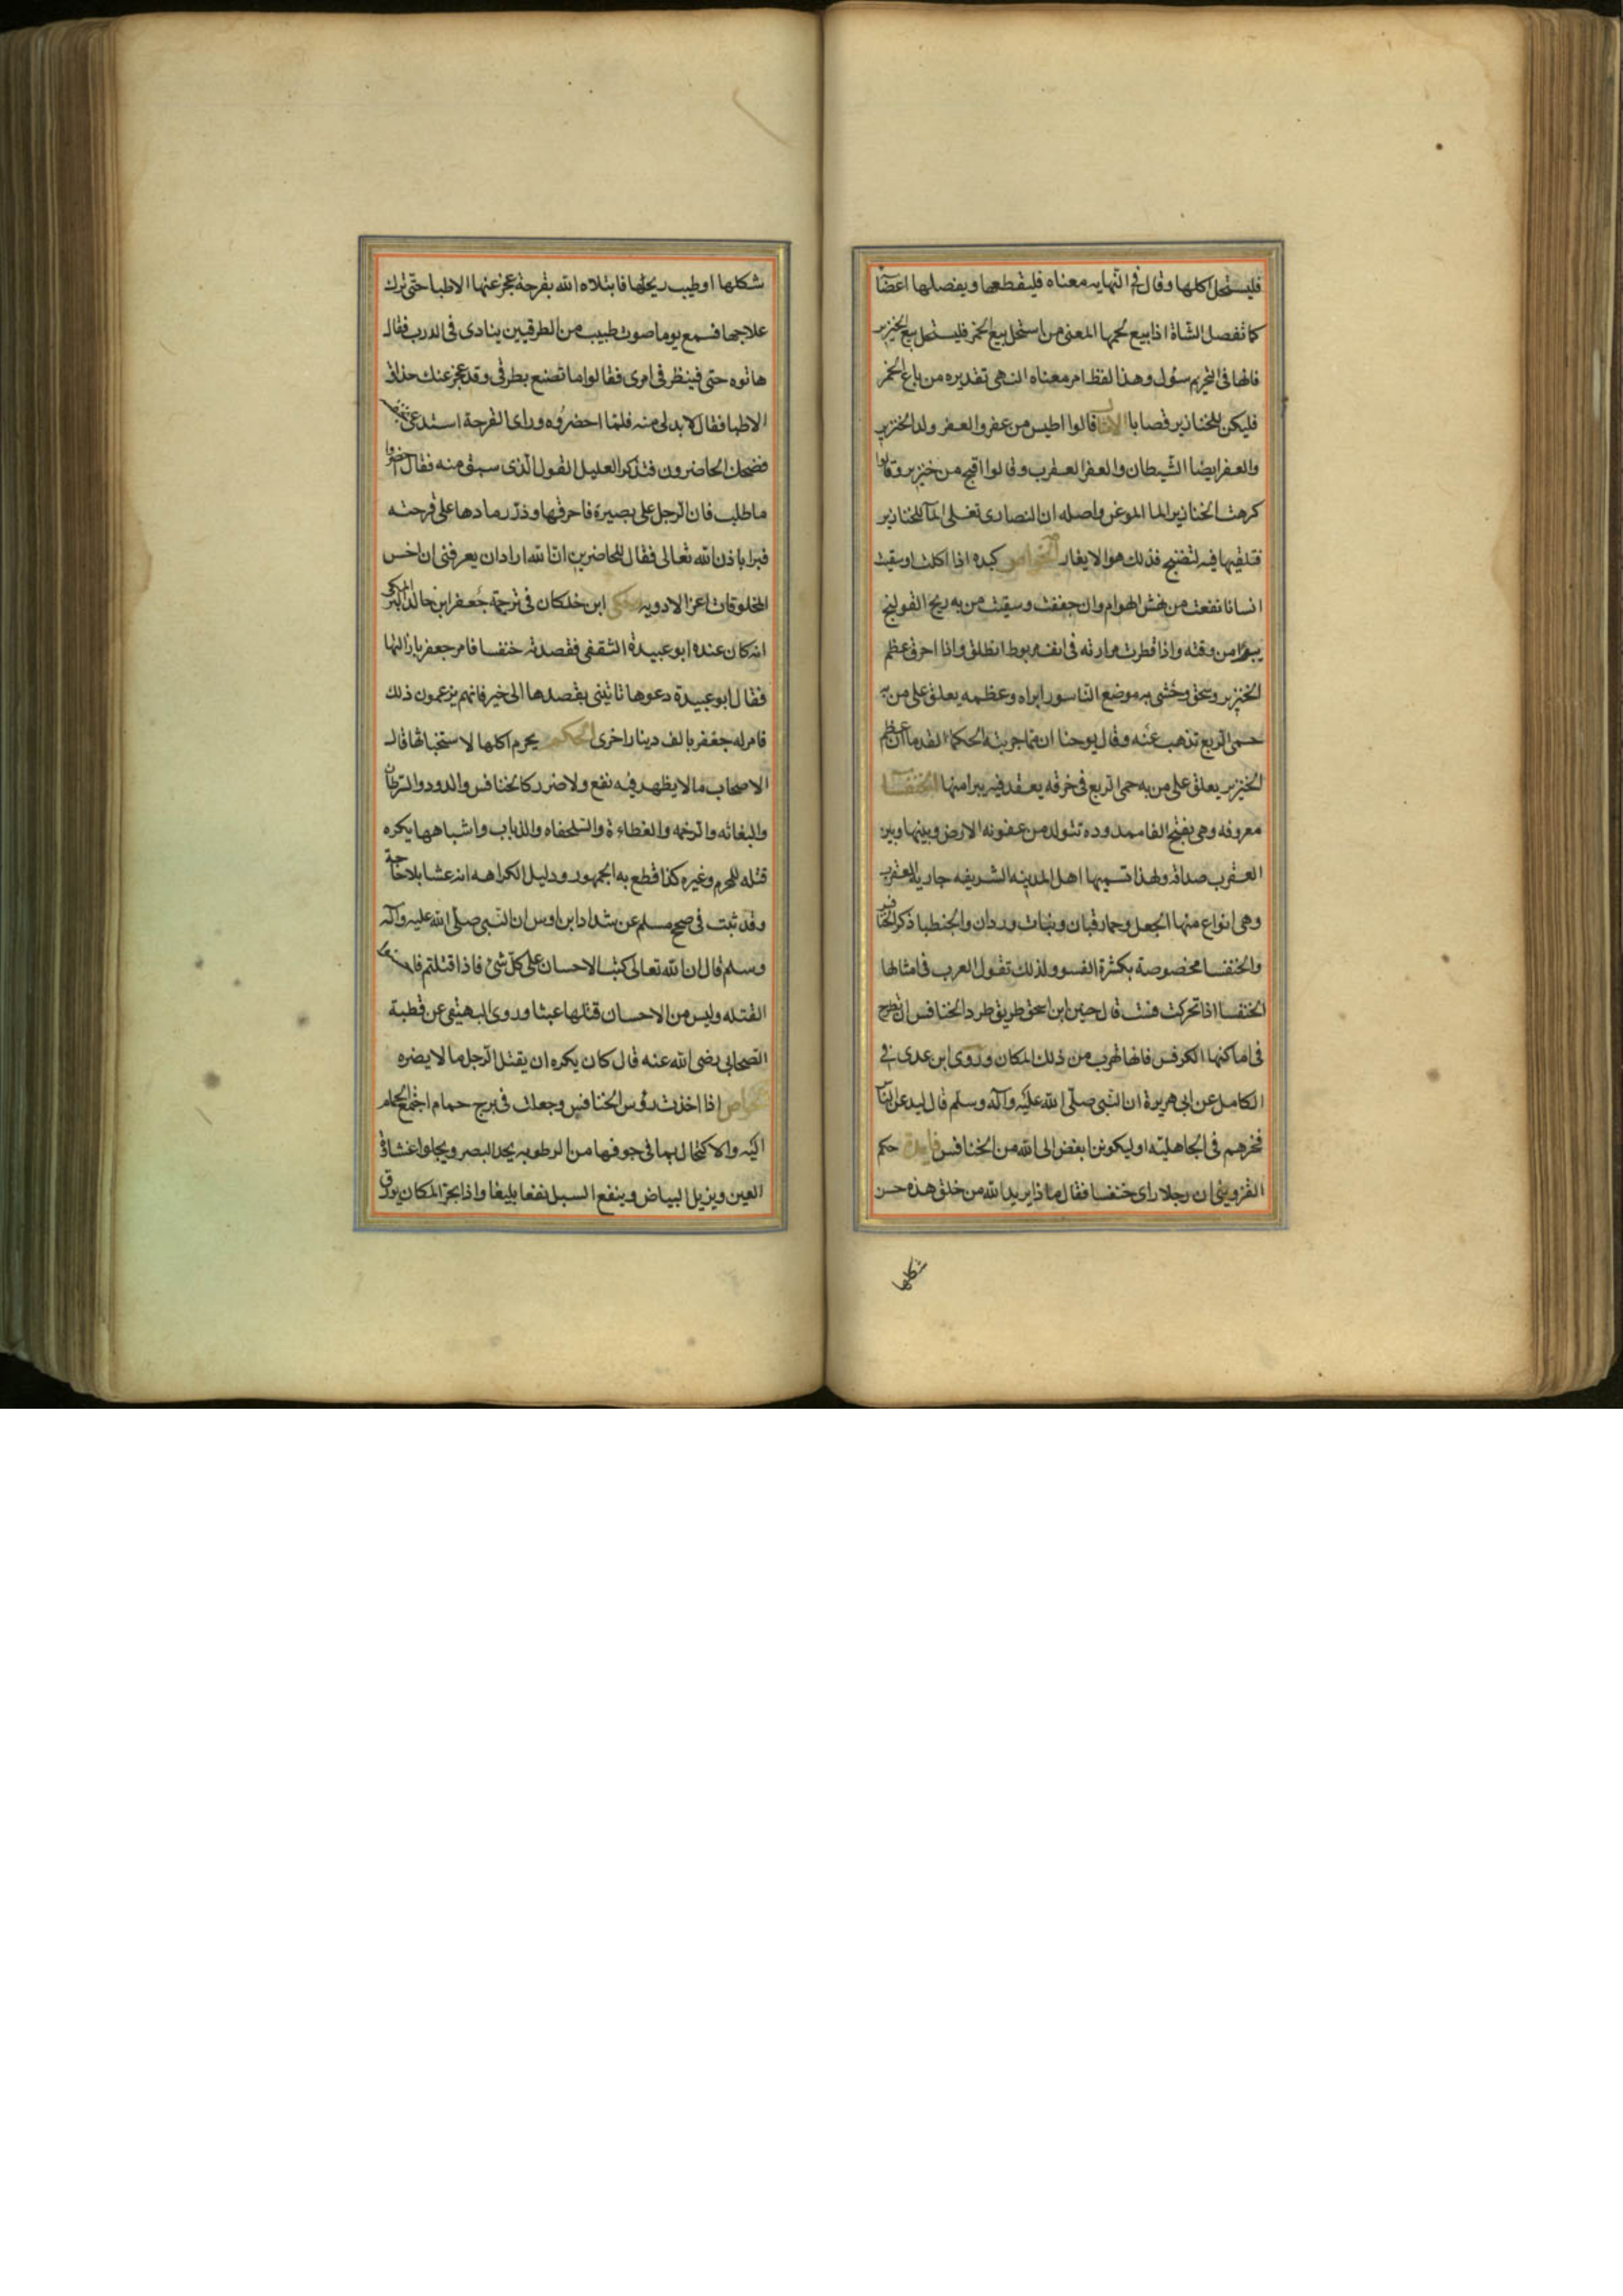 فليستحل اكلها وقال فى النهايه معناه فليقطعها ويفصلها اعضآ
كما تفصل الشاة اذا بيع لحمها المعنى من استحل بيع الخمر فليستحل بيع الخنزير
فانها فى التحريم سول وهذا لفظ امر معناه النهى تقديره من باع الخمر
فليكن للخنازير قصابا قالوا اطيس من عفر والعفر ولد الخنزير
والعفر ايضا الشيطان والعفر العقرب وقالوا اقبح من خنزير وقالوا
كرهت الخنازير الما الموغر واصله ان النصارى تغلى المآ للخنازير
فتلقيها فيه لتنضج فذلك هو الايغار الخواص كبده اذا اكلت او سقيت
انسانا نفعت من نهش الهوام وان جففت وسقيت من به ريح القولنج
من وقته واذا قطرت مرارته فى انف مربوط انطلق واذا احرق عظم
الخنزير وسحق وحشى به موضع الناسور ابراه وعظمه يعلق على من به
حمى الربع تذهب عنه وقال يوحنا ان مما جربته الحكما القدما ان عظم
الخنزير يعلق على من به حمى الربع فى خرقه يعقد فيه يبرا منها الخنفسآ
معروفه وهى بفتح الفا ممدوده تتولد من عفونه الارض وبينها وبين
العقرب صداقه ولهذا تسميها اهل المدينه الشريفه جارية العقرب
وهى انواع منها الجعل وحمار قبان وبنات وردان والحنطبا ذكر الخنافس
والخنفسا مخصوصة بكثرة الفسو ولذلك تقول العرب فى امثالها
الخنفسا اذا تحركت فست قال حنين ابن اسحق طريق طرد الخنافس ان تطرح
فى اماكنها الكرفس فانها تهرب من ذلك المكان وروى ابن عدى فى
الكامل عن ابى هريرة ان النبى صلى الله عليه وآله وسلم قال ليدعن الناس
فخرهم فى الجاهلية او ليكونن ابغض الى الله من الخنافس فايدة حكى
القزوينى ان رجلا راى خنفسا فقال ماذا يريد الله من خلق هذه حسن
شكلها
شكلها او طيب ريحها فابتلاه الله بقرحة عجز عنها الاطبا حتى ترك
علاجها فسمع يوما صوت طبيب من الطرقيين ينادى فى الدرب فقال
هاتوه حتى فينظر فى امرى فقالوا ما تصنع بطرقى وقد عجز عنك حذاق
الاطبا فقال لا بد لى منه فلما احضروه وراى القرحة استدعى بخنفسا
فضحك الحاضرون فتذكر العليل القول الذى سبق منه فقال احضروا
ما طلب فان الرجل على بصيرة فاحرقها وذر رمادها على قرحته
فبرا باذن الله تعالى فقال للحاضرين ان الله اراد ان يعرفنى ان اخس
المخلوقات اعز الادويه حكى ابن خلكان فى ترجمة جعفر ابن خالد البرمكى
انه كان عنده ابو عبيدة الثقفى فقصدته خنفسا فامر جعفر بازالتها
فقال ابو عبيدة دعوها تاتينى بقصدها الى خير فانهم يزعمون ذلك
فامر له جعفر بالف دينار اخرى الحكم يحرم اكلها لاستخباثها قال
الاصحاب ما لا يظهر فيه نفع ولا ضرر كالخنافس والدود والسرطان
والبغاثه والرخمه والعظاءة والسلحفاه والذباب واشباهها يكره
قتله للمحرم وغيره كذا قطع به الجمهور ودليل الكراهه انه عبثا بلا حاجة
وقد ثبت فى صحيح مسلم عن شداد ابن اوس ان النبى صلى الله عليه وآله
وسلم قال ان الله تعالى كتب الاحسان على كل شئ فاذا قتلتم فاحسنوا
القتله وليس من الاحسان قتلها عبثا وروى البيهقى عن قطبة
الصحابى رضى الله عنه قال كان يكره ان يقتل الرجل ما لا يضره
الخواص اذا اخذت رؤس الخنافس وجعلت فى برج حمام اجتمع الحمام
اليه والاكتحال بما فى جوفها من الرطوبه يحد البصر ويجلوا غشاوة
العين ويزيل البياض وينفع السبل نفعا بليغا واذا بخر المكان بورق